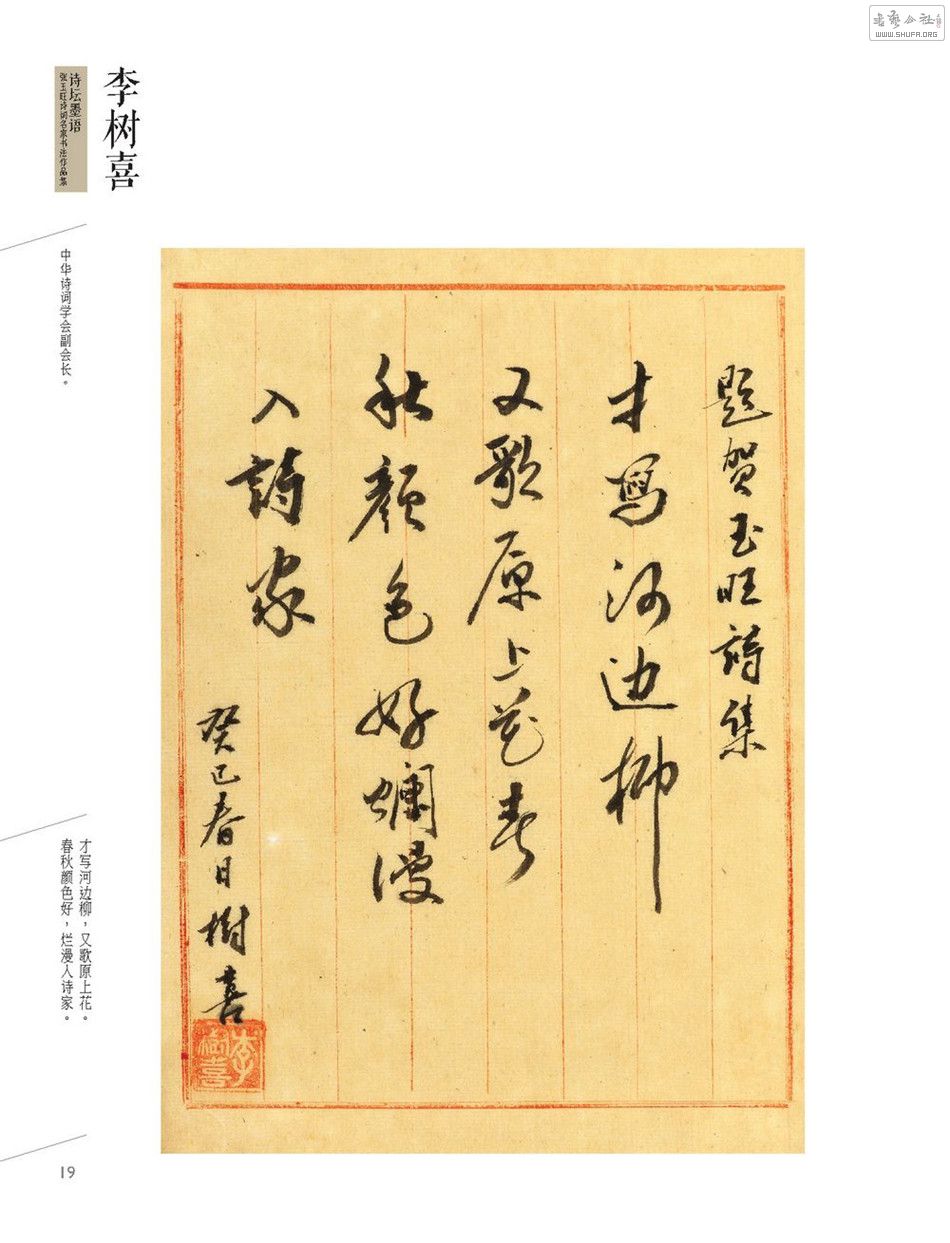 書藝公社
WWW.SHUFA.ORG
李树喜
诗坛墨语
张玉旺诗词名家书法作品集
中华诗词学会副会长。
题贺玉旺詩集
才寫河边柳
又歌原上花春
秋颜色好爛漫
入詩家
癸巳春日樹喜
李樹喜
才写河边柳，又歌原上花。
春秋颜色好，烂漫入诗家。
19